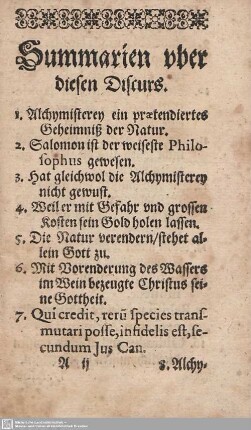 Summarien vber
diesen Discurs.
1. Alchymisterey ein prætendiertes
Geheimniß der Natur.
2. Salomon ist der weiseste Philo-
sophus gewesen.
3. Hat gleichwol die Alchymisterey
nicht gewust.
4. Weil er mit Gefahr vnd grossen
Kosten sein Gold holen lassen.
5. Die Natur verendern/stehet al-
lein Gott zu.
6. Mit Vorenderung des Wassers
im Wein bezeugte Christus sei-
ne Gottheit.
7. Qui credit, rerũ species trans-
mutari posse, infidelis est, se-
cundum Jus Can.
A ij 8. Alchy-